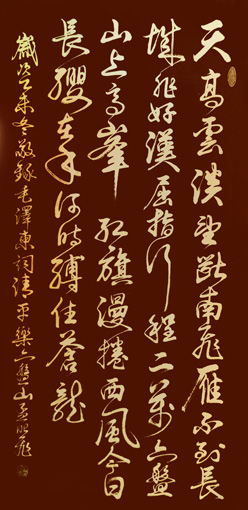 天高雲淡望斷南飛雁不到長
城非好漢屈指行程二萬六盤
山上高峯紅旗漫捲西風今日
長纓在手何時縛住蒼龍
歲次乙未冬敬錄毛澤東詞清平樂六盤山